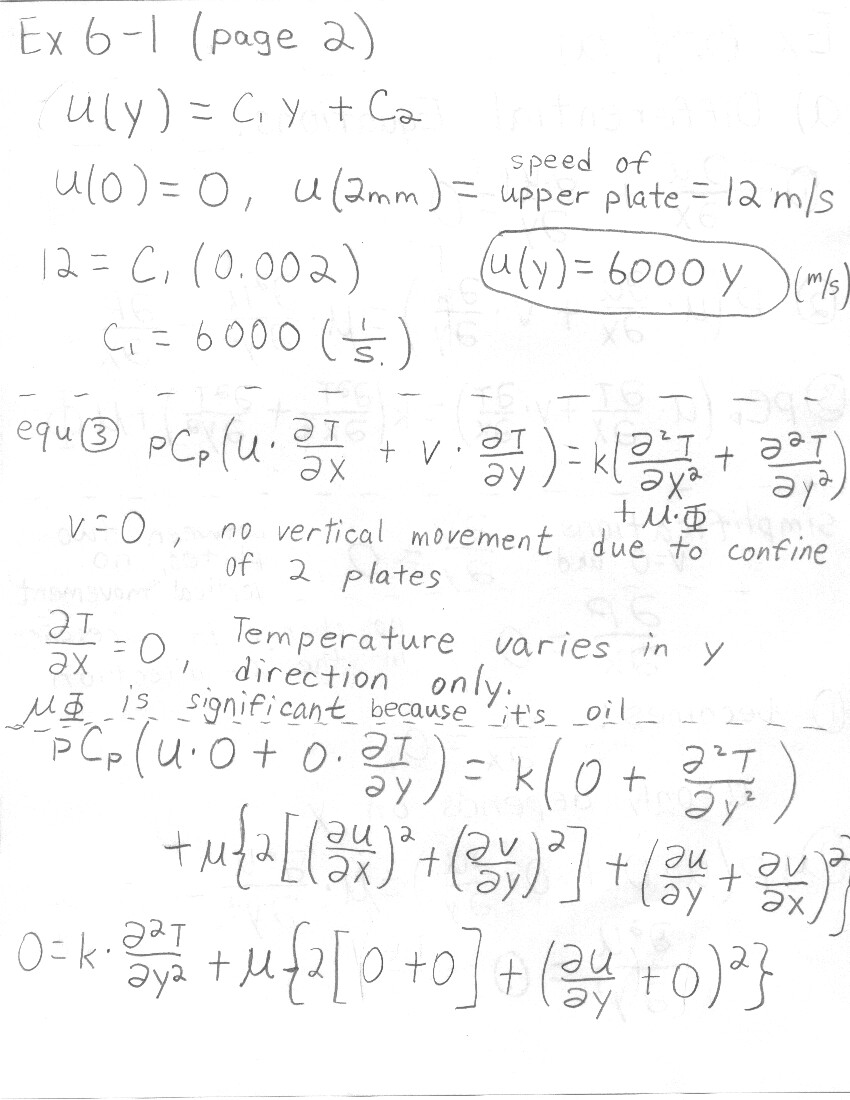 Ex 6-1 (page 2)
u(y) = C₁ y + C₂
u(0) = 0, u(2mm) = speed of upper plate = 12 m/s
12 = C₁ (0.002)
u(y) = 6000 y (m/s)
C₁ = 6000 (1/s.)
equ ③ ρCp(u · ∂T/∂x + v · ∂T/∂y) = k(∂²T/∂x² + ∂²T/∂y²)
+ μ·Φ
v = 0, no vertical movement due to confine
of 2 plates
∂T/∂x = 0, Temperature varies in y
direction only.
μΦ is significant because it's oil
ρCp(u·0 + 0·∂T/∂y) = k(0 + ∂²T/∂y²)
+ μ{2[(∂u/∂x)² + (∂v/∂y)²] + (∂u/∂y + ∂v/∂x)²}
0 = k·∂²T/∂y² + μ{2[0 + 0] + (∂u/∂y + 0)²}